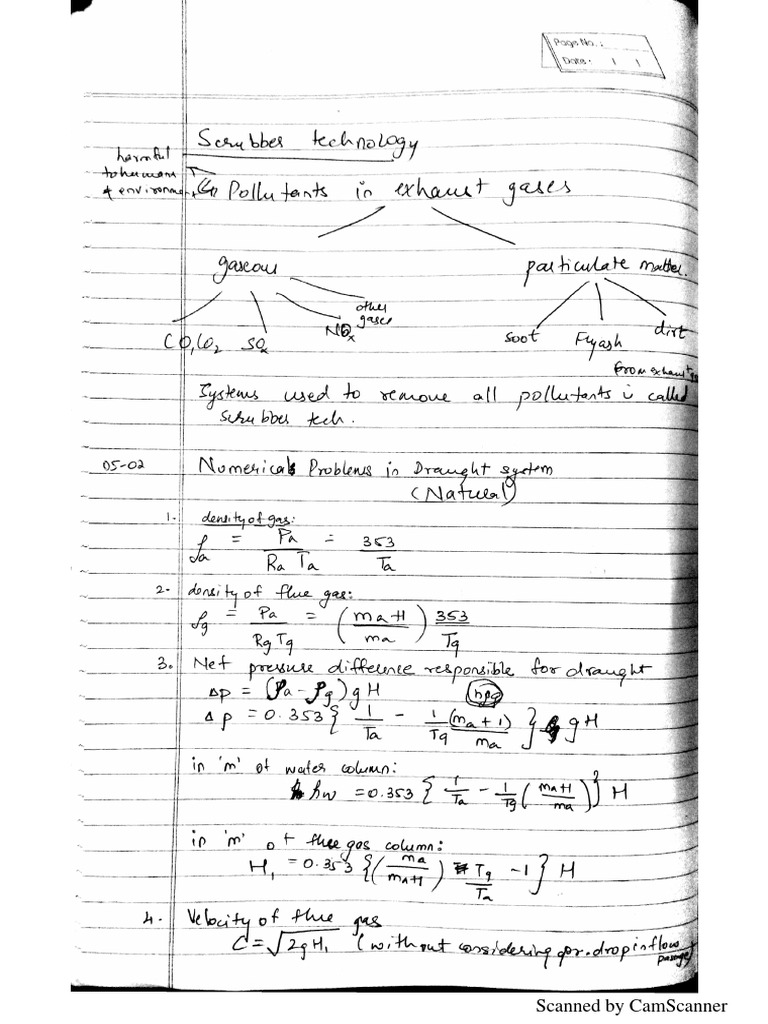 Page No.:
Date: / /
Scrubber technology
harmful
to humans
& environment
Pollutants in exhaust gases
gaseous particulate matter.
CO, CO2 SOx NOx other gases
soot Flyash dirt
from exhaust
Systems used to remove all pollutants is called
scrubber tech.
05-02 Numericals Problems in Draught system
(Natural)
1. density of gas:
ρa = Pa / (Ra Ta) = 353 / Ta
2. density of flue gas:
ρg = Pa / (Rg Tg) = ((ma+1) / ma) 353 / Tg
3. Net pressure difference responsible for draught
Δp = (ρa - ρg) g H
Δp = 0.353 { 1/Ta - 1/Tg (ma+1)/ma } gH
in 'm' of water column:
hw = 0.353 { 1/Ta - 1/Tg ((ma+1)/ma) } H
in 'm' of flue gas column:
H1 = 0.353 { (ma/(ma+1)) Tg/Ta - 1 } H
4. Velocity of flue gas
C = √2gH1 (without considering pr. drop in flow
passage
Scanned by CamScanner